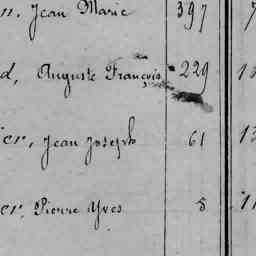 n, Jean Marie 397
d, Auguste François 229
er, Jean Joseph 61
er, Pierre Yves 8